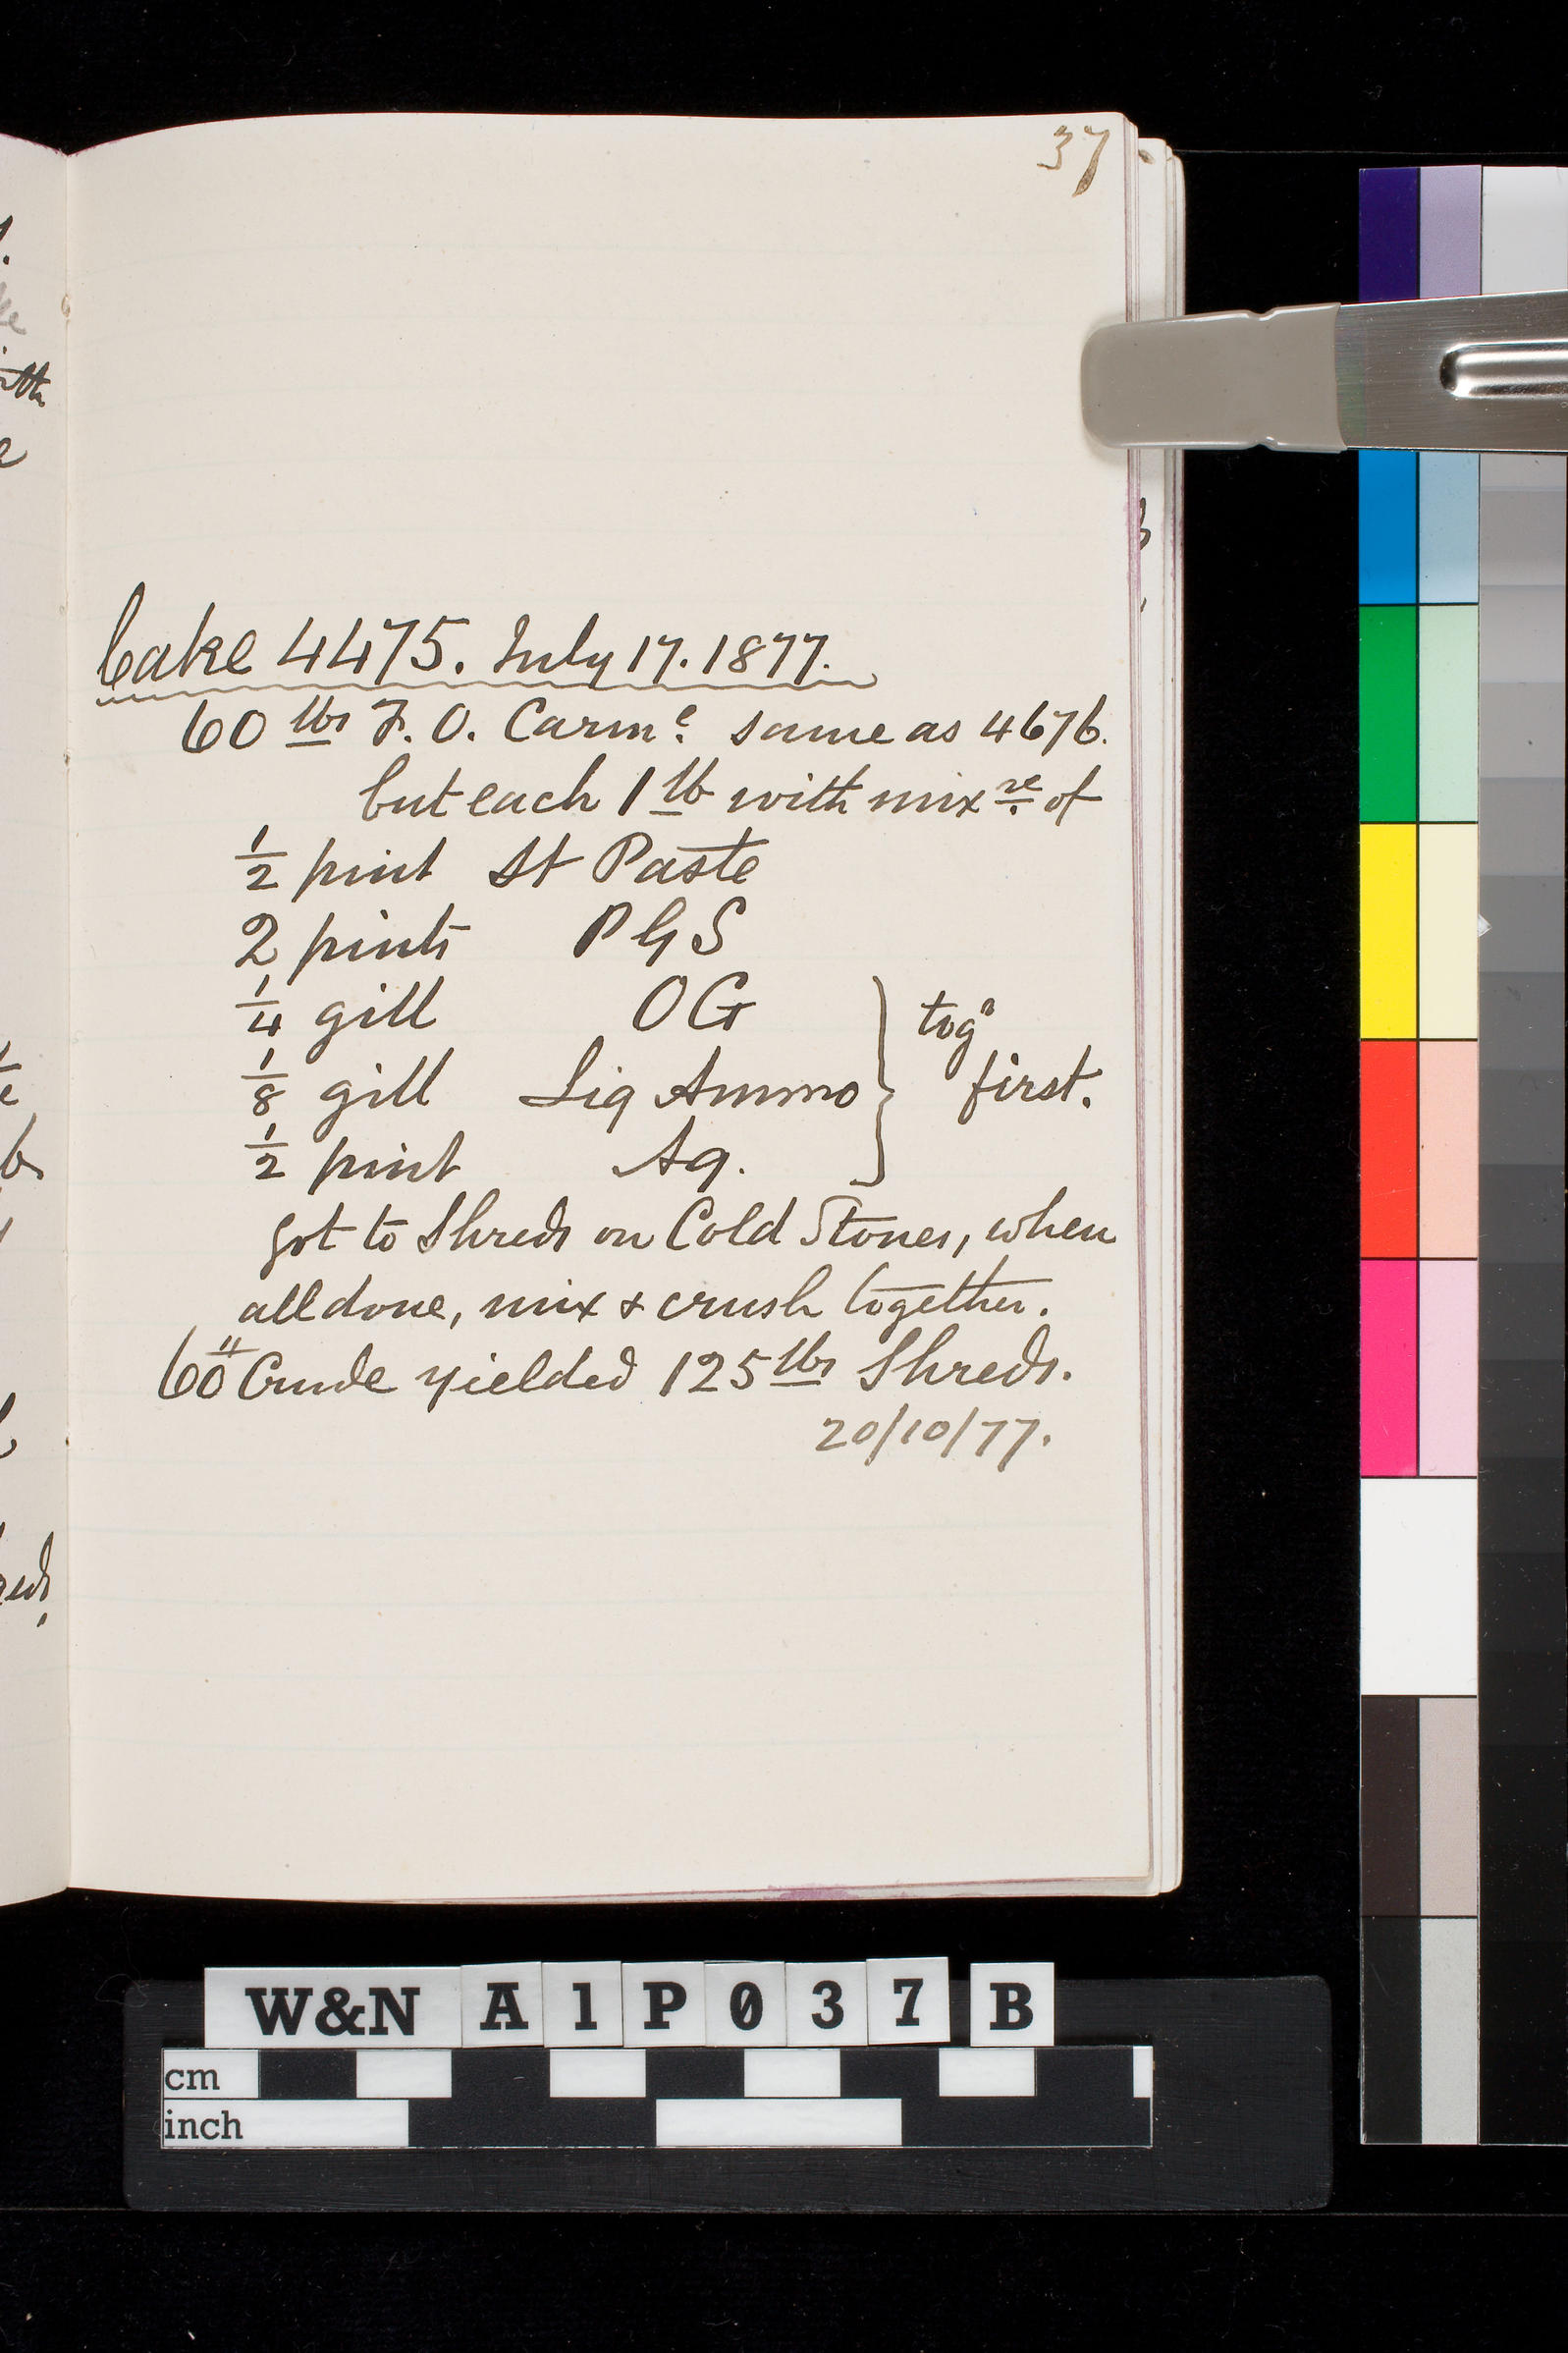 37
Cake 4475. July 17. 1877.
60 lbs F. O. Carmᵉ. same as 4676.
but each 1 lb with mixʳᵉ of
½ pint St Paste
2 pints PGS
¼ gill OG
⅛ gill Liq Ammo
togʳ first.
½ pint Aq.
got to Shreds on Cold Stones, when
all done, mix & crush together.
60" Crude yielded 125 lbs Shreds.
20/10/77.
W&N A1P037 B
cm
inch